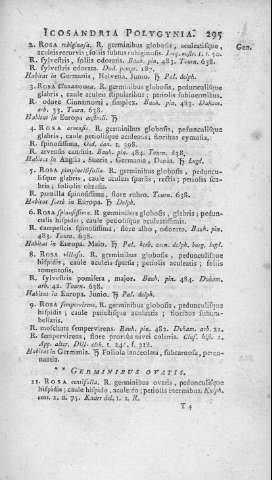 ICOSANDRIA POLYGYNIA. 295
2. ROSA rubiginosa, R. germinibus globosis, aculeatisque,
aculeis recurvis; foliis subtus rubiginosis. t. 50. Gen.
R. sylvestris, foliis odoratis. Bauh. pin. 483. Tourn. 638.
R. sylvestris odora. Dod. pempt. 187.
Habitat in Germania, Helvetia. Junio. ♄ Pal. delph.
3. ROSA Cinnamomea. R. germinibus globosis, pedunculisque
glabris, caule aculeis stipularibus; petiolis subinermibus.
R. odore Cinnamomi, simplex. Bauh. pin. 483. Duham.
arb. 53. Tourn. 638.
Habitat in Europa australi. ♄
4. ROSA arvensis. R. germinibus globosis, pedunculisque
glabris, caule petiolisque aculeatis, floribus cymosis.
R. spinosissima. Oed. dan. t. 398.
R. arvensis candida. Bauh. pin. 484. Tourn. 638.
Habitat in Anglia, Suecia, Germania, Dania. ♄
5. ROSA pimpinellifolia. R. germinibus globosis, peduncu-
lisque glabris, caule aculeis sparsis, rectis; petiolis sca-
bris; foliolis obtusis.
R. pumila spinosissima, flore rubro. Tourn. 638.
Habitat forte in Europa. ♄ Delph.
6. ROSA spinosissima. R. germinibus globosis, glabris; pedun-
culis hispidis; caule petiolisque aculeatissimis.
R. campestris spinosissima, flore albo, odorato. Bauh. pin.
483. Tourn. 638.
Habitat in Europa. Maio. ♄ Pal. herb. delph.
8. ROSA villosa. R. germinibus globosis, pedunculisque
hispidis, caule aculeis sparsis; petiolis aculeatis; foliis
tomentosis.
R. sylvestris pomifera, major. Bauh. pin. 484. Duham.
arb. 42. Tourn. 638.
Habitat in Europa. Junio. ♄ Pal. delph.
9. ROSA sempervirens. R. germinibus globosis, pedunculisque
hispidis; caule petiolisque aculeatis; floribus subum-
bellatis.
R. moschata sempervirens. Bauh. pin. 482. Duham. arb. 21.
R. sempervirens, flore pruni nivei coloris. Clus. hist. 2.
App. alter. Dill. elth. t. 246. f. 318.
Habitat in Germania. ♄ Foliola lanceolata, subcarnosa, peren-
nantia.
* * GERMINIBUS OVATIS.
11. ROSA centifolia. R. germinibus ovatis, pedunculisque
hispidis; caule hispido, aculeato; petiolis inermibus. Kniph.
cent. 2. n. 75. Knorr del. 1. t. R.
T 4